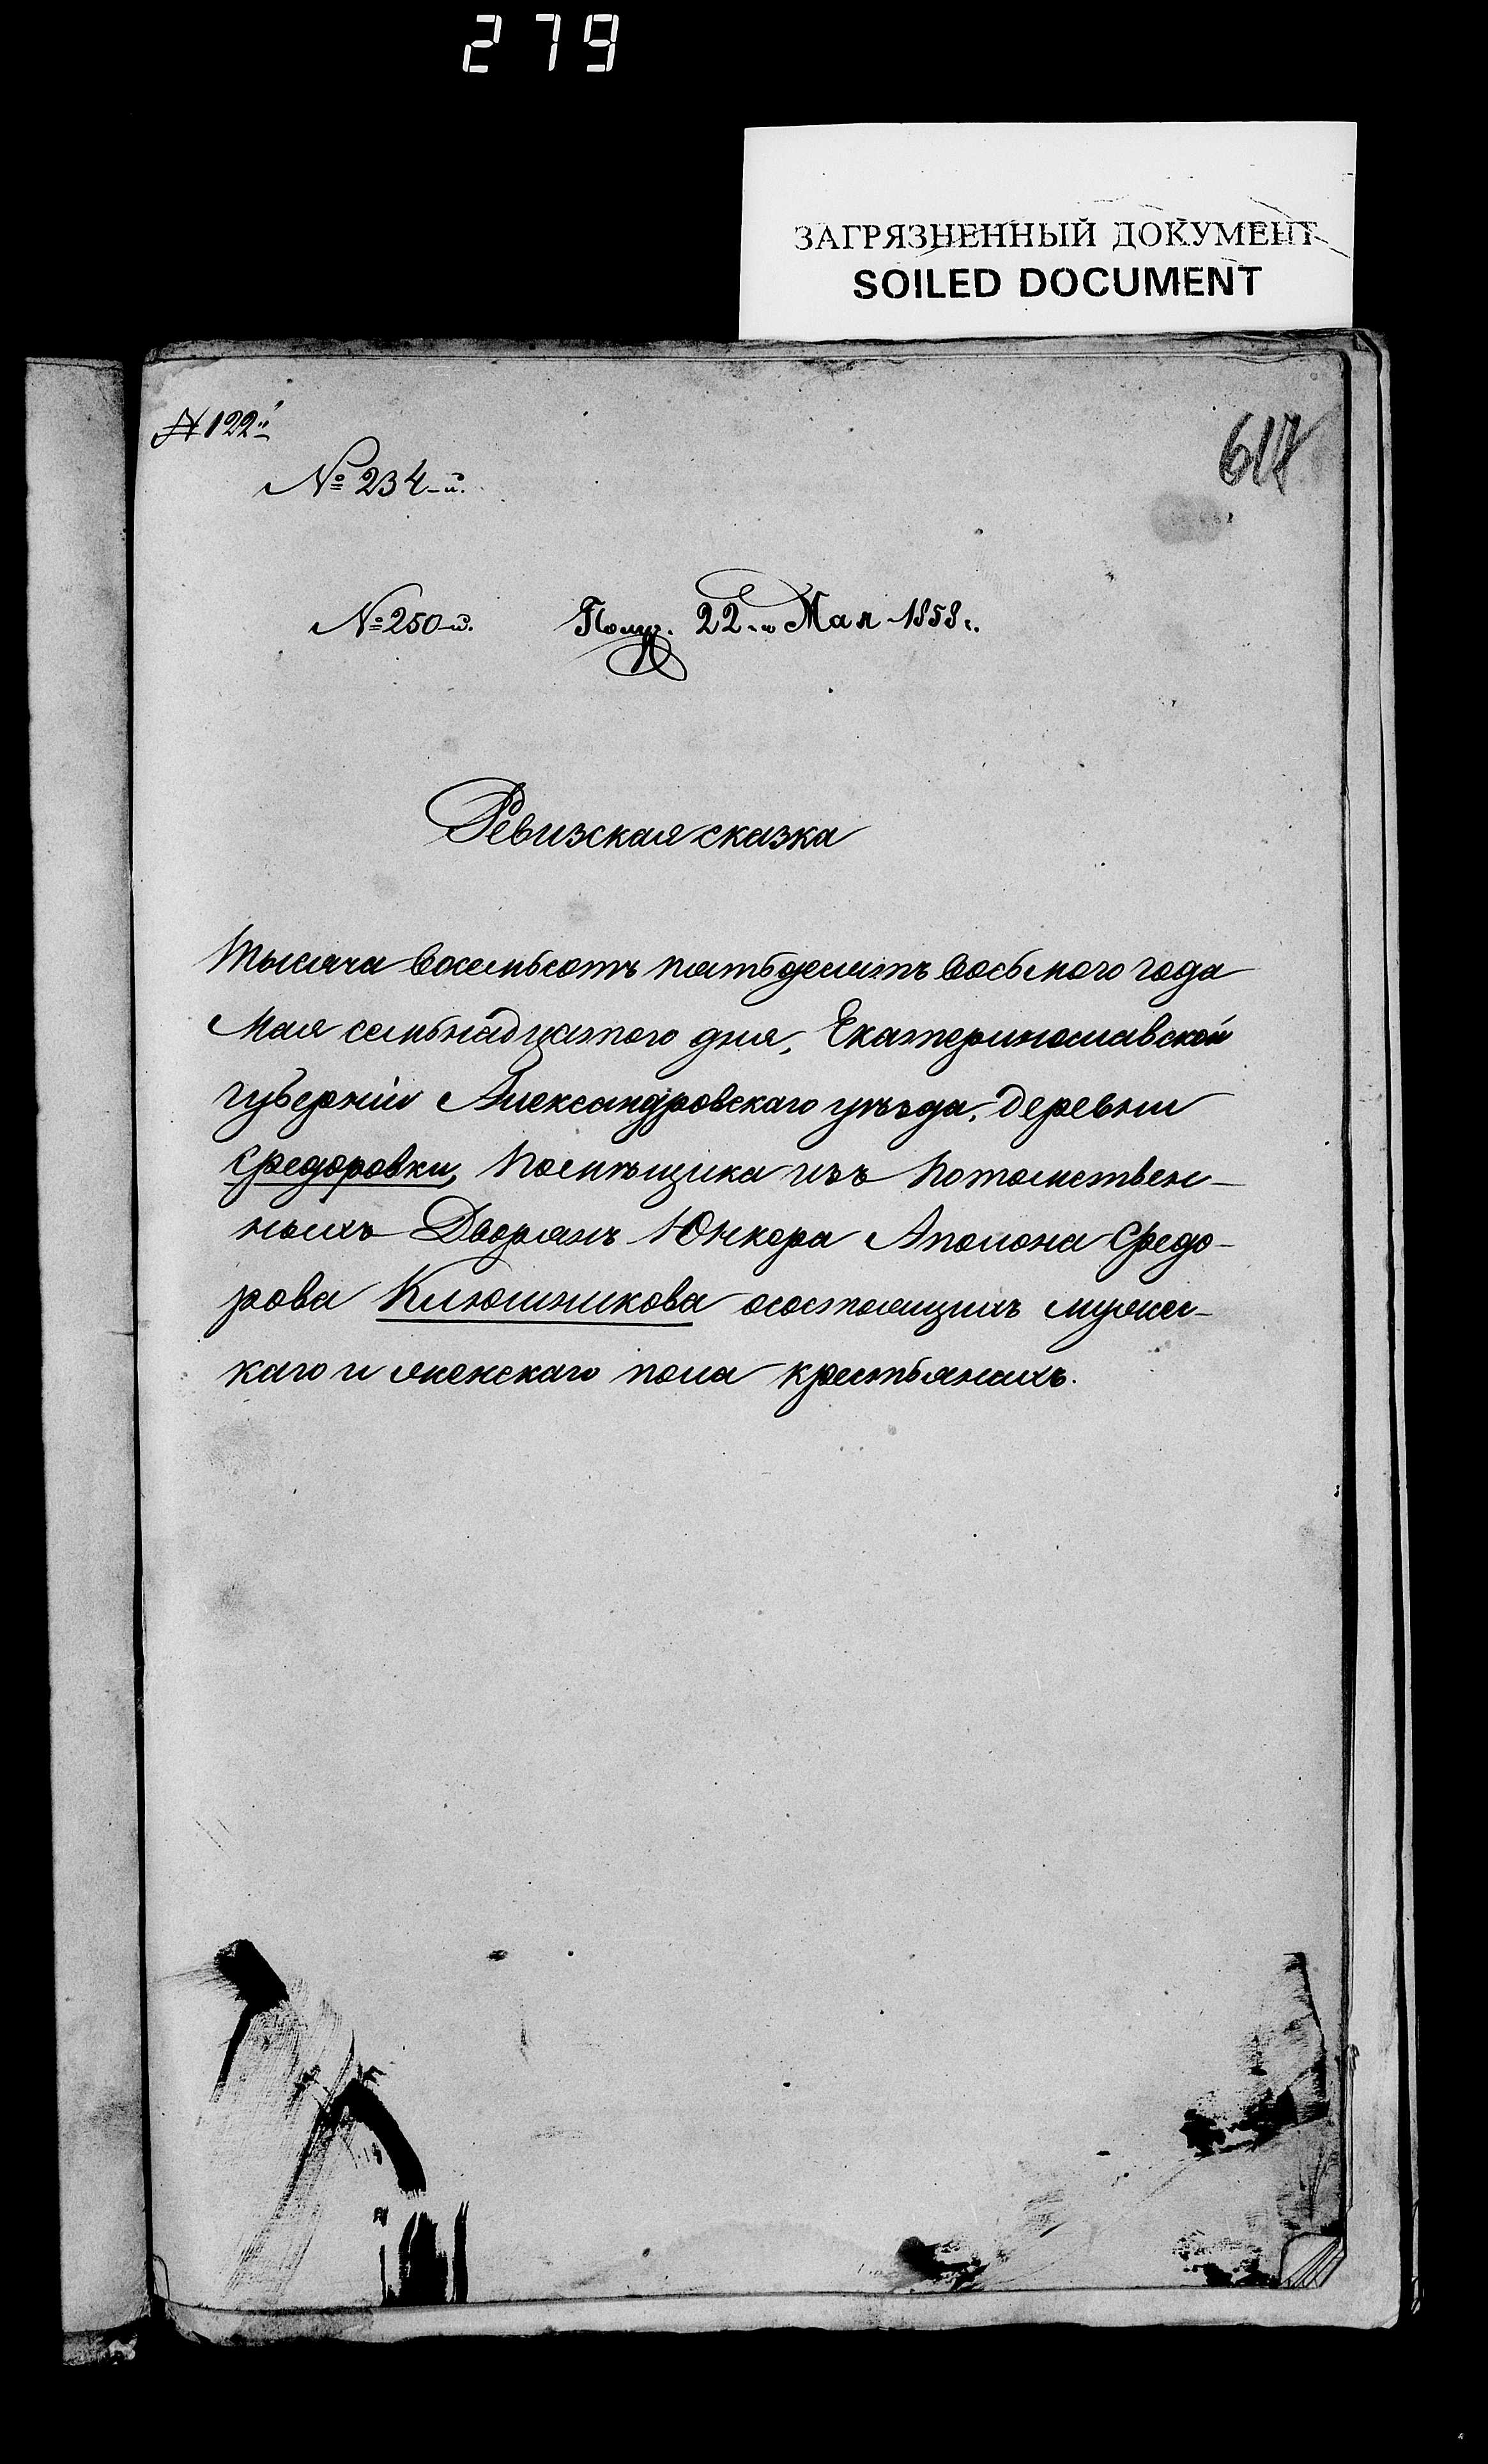 279
ЗАГРЯЗНЕННЫЙ ДОКУМЕНТ
SOILED DOCUMENT
№ 122й
617
№ 234-й.
№ 250-й. Получ. 22-го Мая 1858 г.
Ревизская сказка
Тысяча восемьсотъ пятьдесятъ восьмого года
Мая семьнадцатого дня, Екатеринославской
губерніи Александровскаго уѣзда, деревни
Федоровки, помѣщика изъ потомствен-
ныхъ Дворянъ Юнкера Аполона Федо-
рова Клюшникова осостоящихъ мужес-
каго и женскаго пола крестьянахъ.